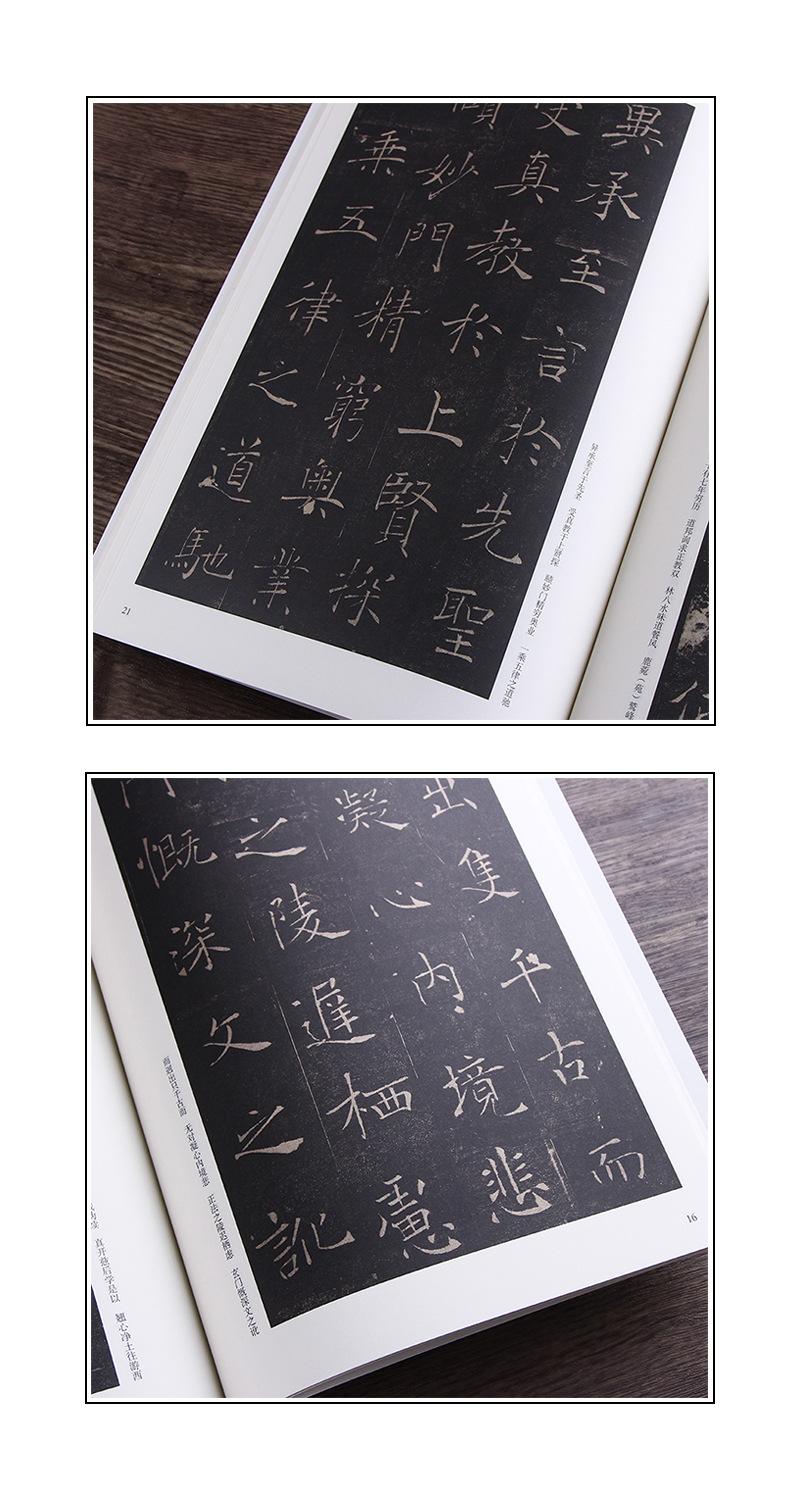 異承至言於先聖
受真教於上賢探
妙門精窮奥業
乘五律之道馳
异承至言于先圣 受真教于上贤探 赜妙门精穷奥业 一乘五律之道驰
有七年穷历 道邦询求正教双 林八水味道餐风 鹿菀（苑）鹫峰
21
出隻千古而
凝心内境悲
之陵遲栖慮
慨深文之訛
而迥出只千古而 无对凝心内境悲 正法之陵迟栖虑 玄门慨深文之讹
伪续 真开兹后学是以 翘心净土往游西
16